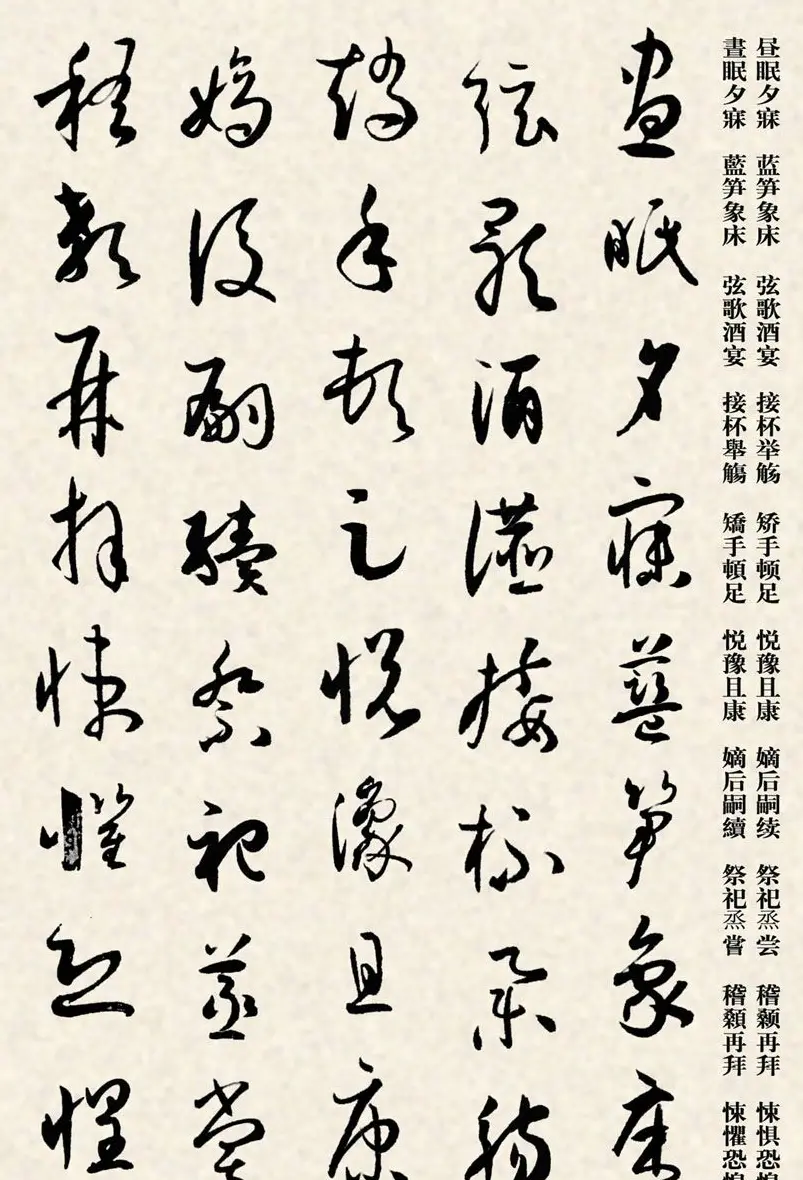 昼眠夕寐 蓝笋象床 弦歌酒宴 接杯举觞 矫手顿足 悦豫且康 嫡后嗣续 祭祀烝尝 稽颡再拜 悚惧恐惶
晝眠夕寐 藍笋象床 弦歌酒宴 接杯舉觴 矯手頓足 悦豫且康 嫡后嗣續 祭祀烝嘗 稽顙再拜 悚懼恐惶
晝眠夕寐藍笋象床
弦歌酒讌接杯舉觴
矯手頓足悦豫且康
嫡後嗣續祭祀蒸嘗
稽顙再拜悚懼恐惶